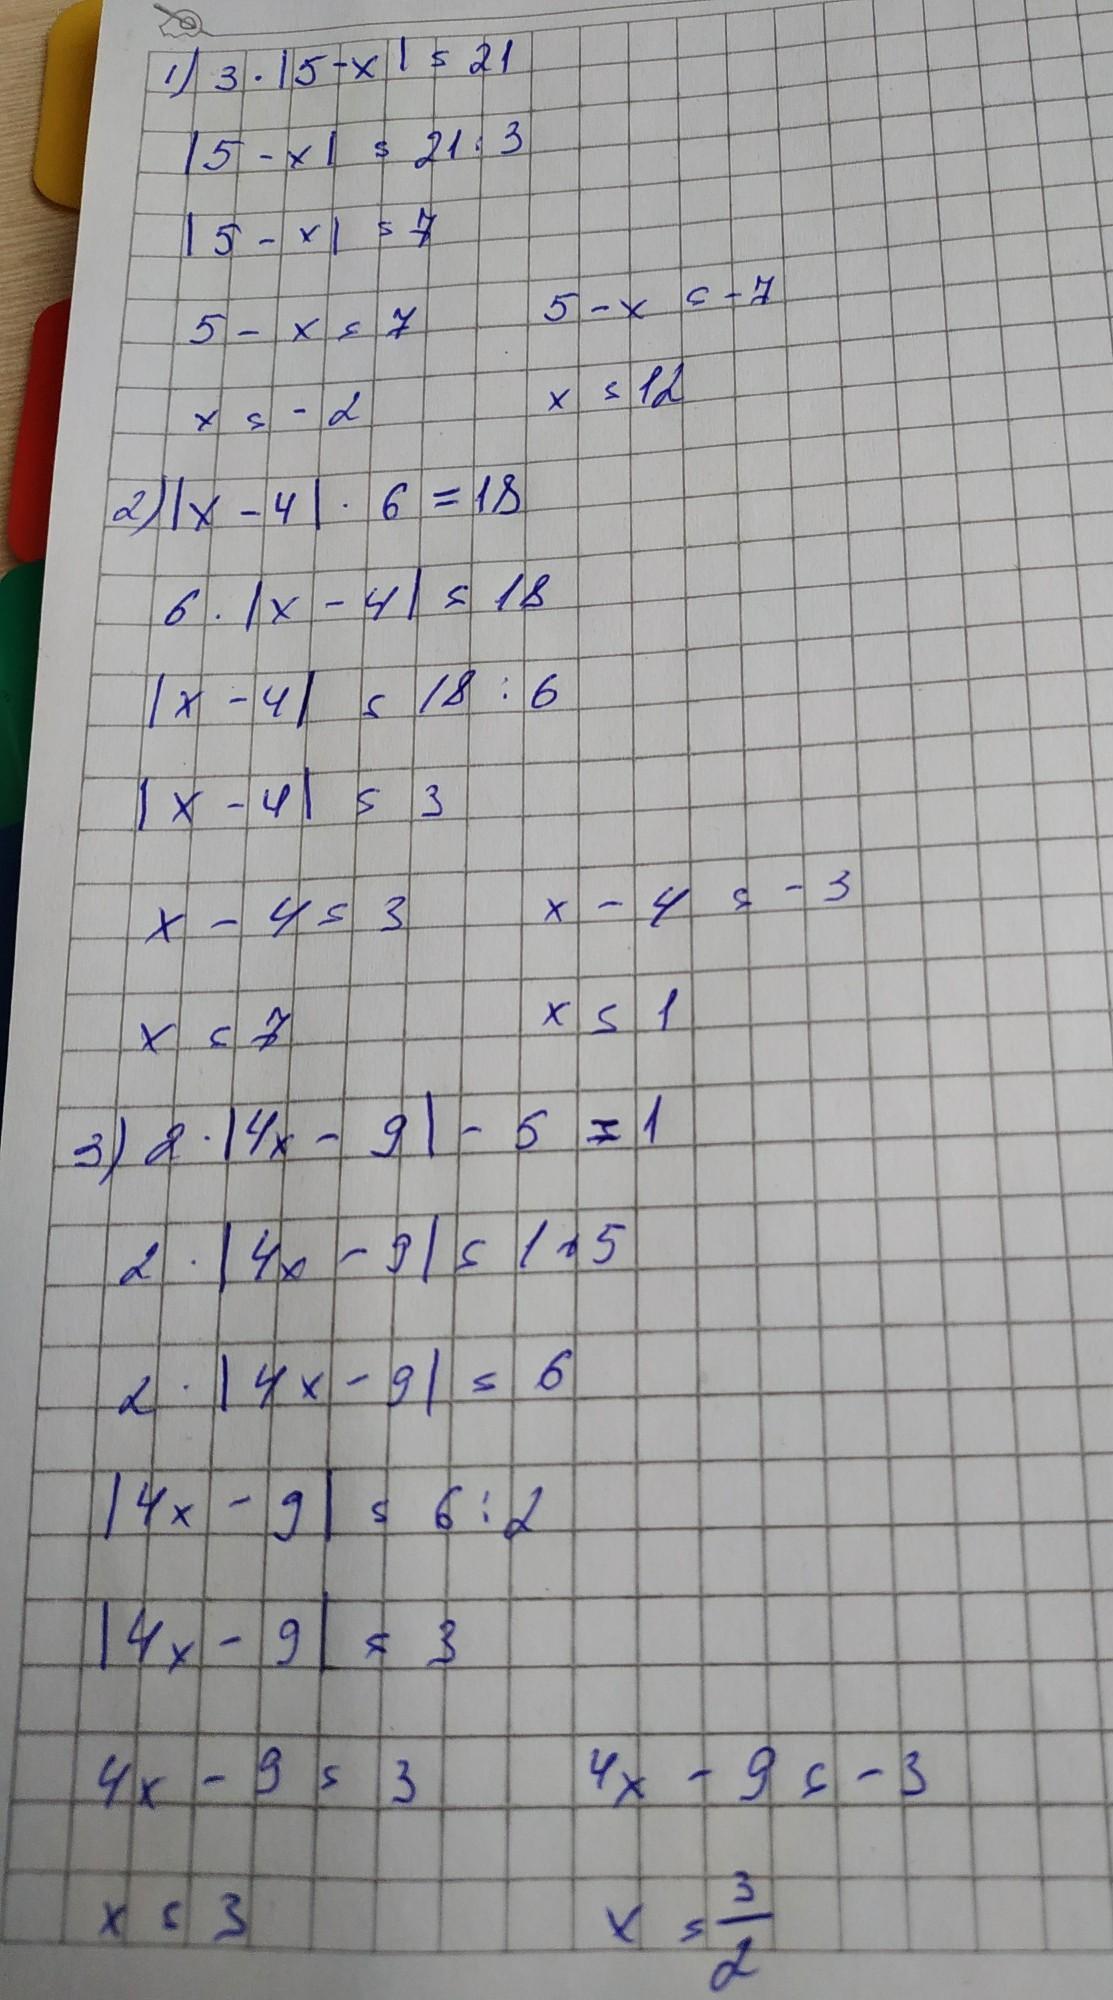 1) 3 · |5 - x| = 21
|5 - x| = 21 : 3
|5 - x| = 7
5 - x = 7    5 - x = -7
x = -2    x = 12
2) |x - 4| · 6 = 18
6 · |x - 4| = 18
|x - 4| = 18 : 6
|x - 4| = 3
x - 4 = 3    x - 4 = -3
x = 7    x = 1
3) 2 · |4x - 9| - 5 = 1
2 · |4x - 9| = 1 + 5
2 · |4x - 9| = 6
|4x - 9| = 6 : 2
|4x - 9| = 3
4x - 9 = 3    4x - 9 = -3
x = 3    x = 3/2